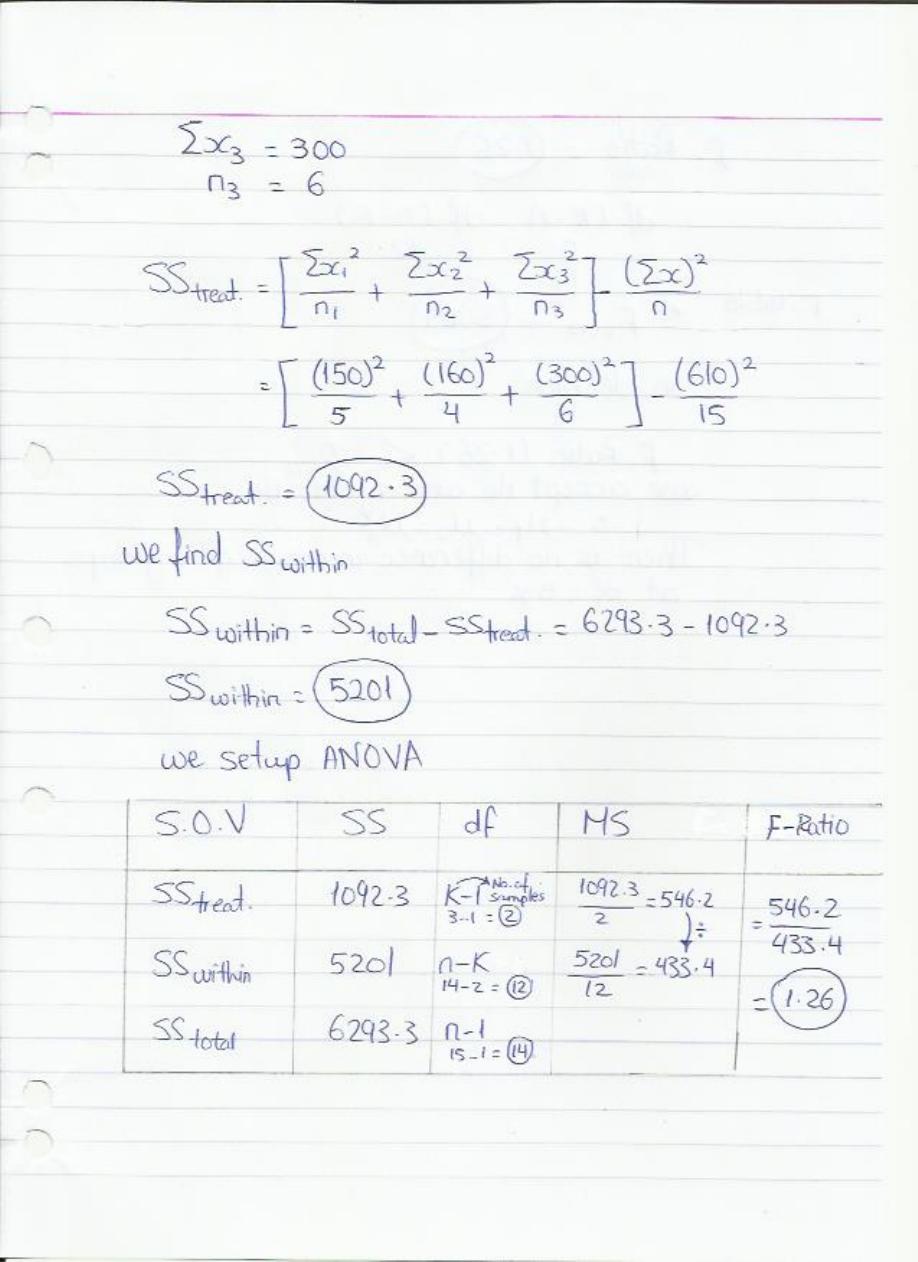 Σx₃ = 300
n₃ = 6
SS treat. = [Σx₁²/n₁ + Σx₂²/n₂ + Σx₃²/n₃] - (Σx)²/n
= [(150)²/5 + (160)²/4 + (300)²/6] - (610)²/15
SS treat. = 1092.3
we find SS within
SS within = SS total - SS treat. = 6293.3 - 1092.3
SS within = 5201
we setup ANOVA
S.O.V SS df MS F-Ratio
SS treat. 1092.3 K-1 → No. of samples 3-1 = 2 1092.3/2 = 546.2 ÷ = 546.2/433.4
SS within 5201 n-K 14-2 = 12 5201/12 = 433.4 = 1.26
SS total 6293.3 n-1 15-1 = 14